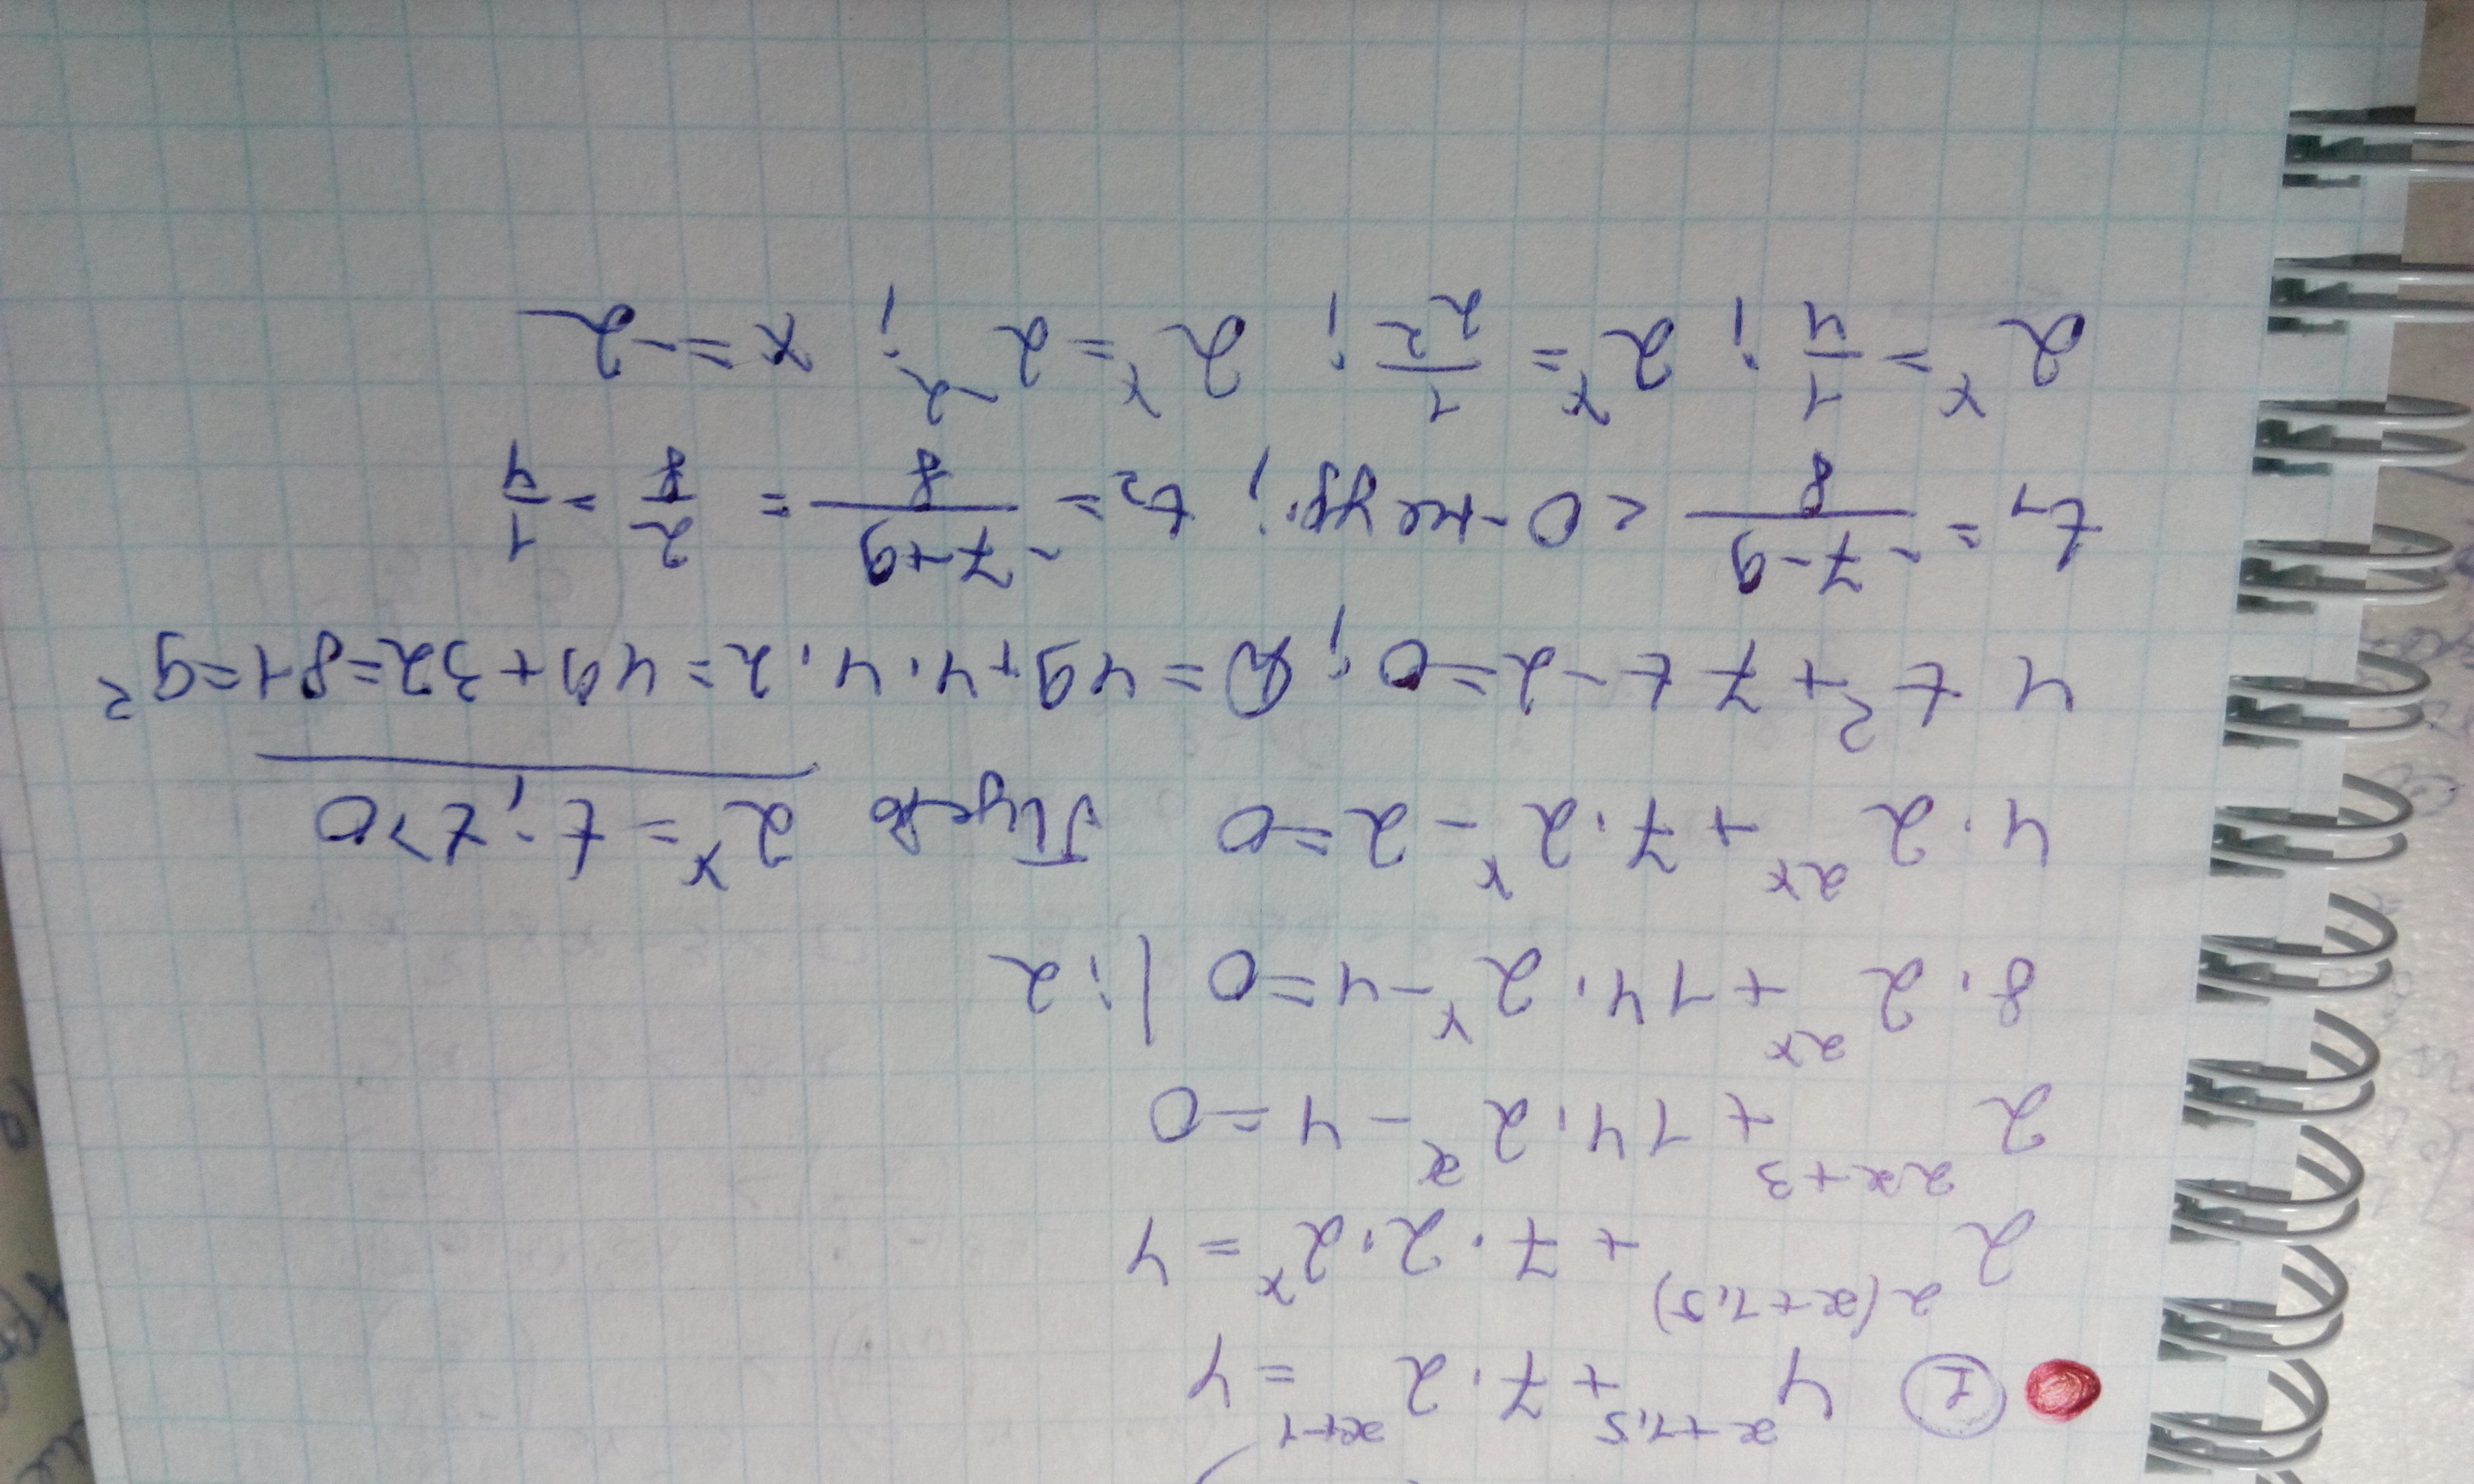 ① 4^(x+1,5) + 7·2^(x+1) = 4
2^(2(x+1,5)) + 7·2·2^x = 4
2^(2x+3) + 14·2^x - 4 = 0
8·2^(2x) + 14·2^x - 4 = 0 | :2
4·2^(2x) + 7·2^x - 2 = 0 Пусть 2^x = t; t>0
4t² + 7t - 2 = 0; D = 49+4·4·2 = 49+32=81=9²
t₁ = (-7-9)/8 < 0 - не ур.; t₂ = (-7+9)/8 = 2/8 = 1/4
2^x = 1/4; 2^x = 1/2²; 2^x = 2^(-2); x = -2